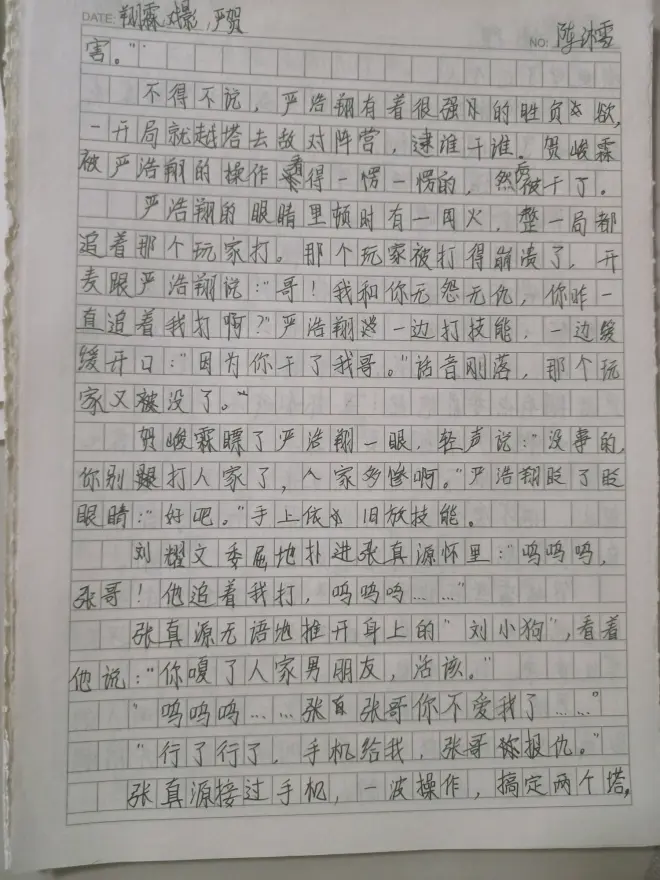 DATE: 翔霖对影,严贺
NO: 陈沭雪
害。"
不得不说,严浩翔有着很强的胜负欲,
一开局就越塔去敌对阵营,逮谁干谁。贺峻霖
被严浩翔的操作看得一愣一愣的,然后被干了。
严浩翔的眼睛里顿时有一团火,整一局都
追着那个玩家打。那个玩家被打得崩溃了,开
麦跟严浩翔说:"哥!我和你无怨无仇,你咋一
直追着我打啊?"严浩翔一边打技能,一边缓
缓开口:"因为你干了我哥。"话音刚落,那个玩
家又被没了。
贺峻霖瞟了严浩翔一眼,轻声说:"没事的,
你别跟打人家了,人家多惨啊。"严浩翔眨了眨
眼睛:"好吧。"手上依旧放技能。
刘耀文委屈地扑进张真源怀里:"呜呜呜,
张哥!他追着我打,呜呜呜……"
张真源无语地推开身上的"刘小狗",看着
他说:"你嘎了人家男朋友,活该。"
"呜呜呜……张 张哥你不爱我了……。
"行了行了,手机给我,张哥你报仇。"
张真源接过手机,一波操作,搞定两个塔,